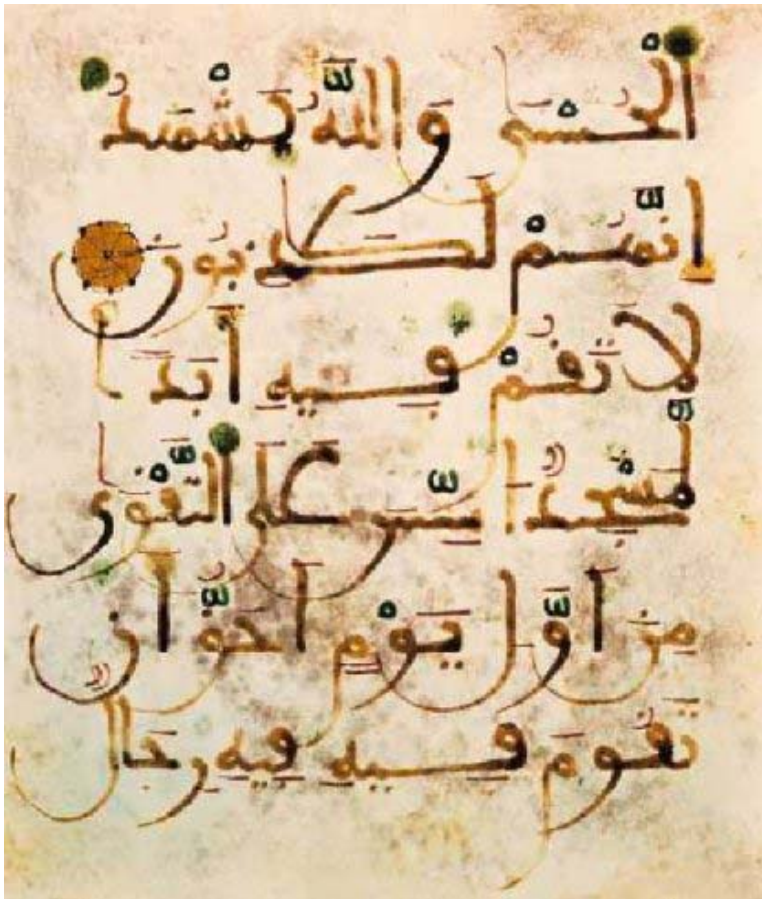 ٱلْحُسْنَىٰ وَٱللَّهُ يَشْهَدُ
إِنَّهُمْ لَكَٰذِبُونَ
لَا تَقُمْ فِيهِ أَبَدًا
لَّمَسْجِدٌ أُسِّسَ عَلَى ٱلتَّقْوَىٰ
مِنْ أَوَّلِ يَوْمٍ أَحَقُّ أَن
تَقُومَ فِيهِ فِيهِ رِجَالٌ